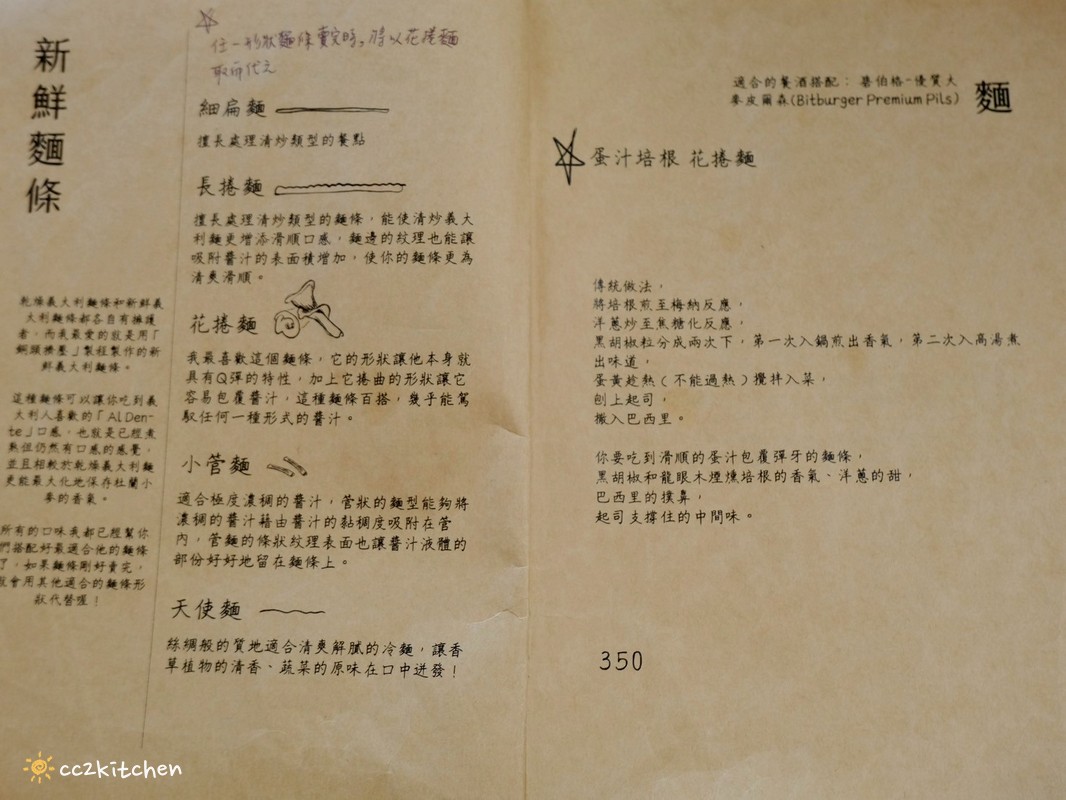 新鮮麵條
乾燥義大利麵條和新鮮義
大利麵條都各自有擁護
者，而我最愛的就是用「
銅頭擠壓」製程製作的新
鮮義大利麵條。
這種麵條可以讓你吃到義
大利人喜歡的「AlDen-
te」口感，也就是已經煮
熟但仍然有口感的感覺，
並且相較於乾燥義大利麵
更能最大化地保存杜蘭小
麥的香氣。
所有的口味我都已經幫你
們搭配好最適合他的麵條
了，如果麵條剛好賣完，
我會用其他適合的麵條形
狀代替喔！
任一形狀麵條賣完時，將以花捲麵
取而代之
細扁麵
擅長處理清炒類型的餐點
長捲麵
擅長處理清炒類型的麵條，能使清炒義大
利麵更增添滑順口感，麵邊的紋理也能讓
吸附醬汁的表面積增加，使你的麵條更為
清爽滑順。
花捲麵
我最喜歡這個麵條，它的形狀讓他本身就
具有Q彈的特性，加上它捲曲的形狀讓它
容易包覆醬汁，這種麵條百搭，幾乎能駕
馭任何一種形式的醬汁。
小管麵
適合極度濃稠的醬汁，管狀的麵型能夠將
濃稠的醬汁藉由醬汁的黏稠度吸附在管
內，管麵的條狀紋理表面也讓醬汁液體的
部份好好地留在麵條上。
天使麵
絲綢般的質地適合清爽解膩的冷麵，讓香
草植物的清香、蔬菜的原味在口中迸發！
適合的餐酒搭配：碧伯格-優質大
麥皮爾森(Bitburger Premium Pils)
麵
蛋汁培根 花捲麵
傳統做法，
將培根煎至梅納反應，
洋蔥炒至焦糖化反應，
黑胡椒粒分成兩次下，第一次入鍋煎出香氣，第二次入高湯煮
出味道，
蛋黃趁熱(不能過熱)攪拌入菜，
刨上起司，
撒入巴西里。
你要吃到滑順的蛋汁包覆彈牙的麵條，
黑胡椒和龍眼木煙燻培根的香氣、洋蔥的甜，
巴西里的撲鼻，
起司支撐住的中間味。
350
cc2kitchen